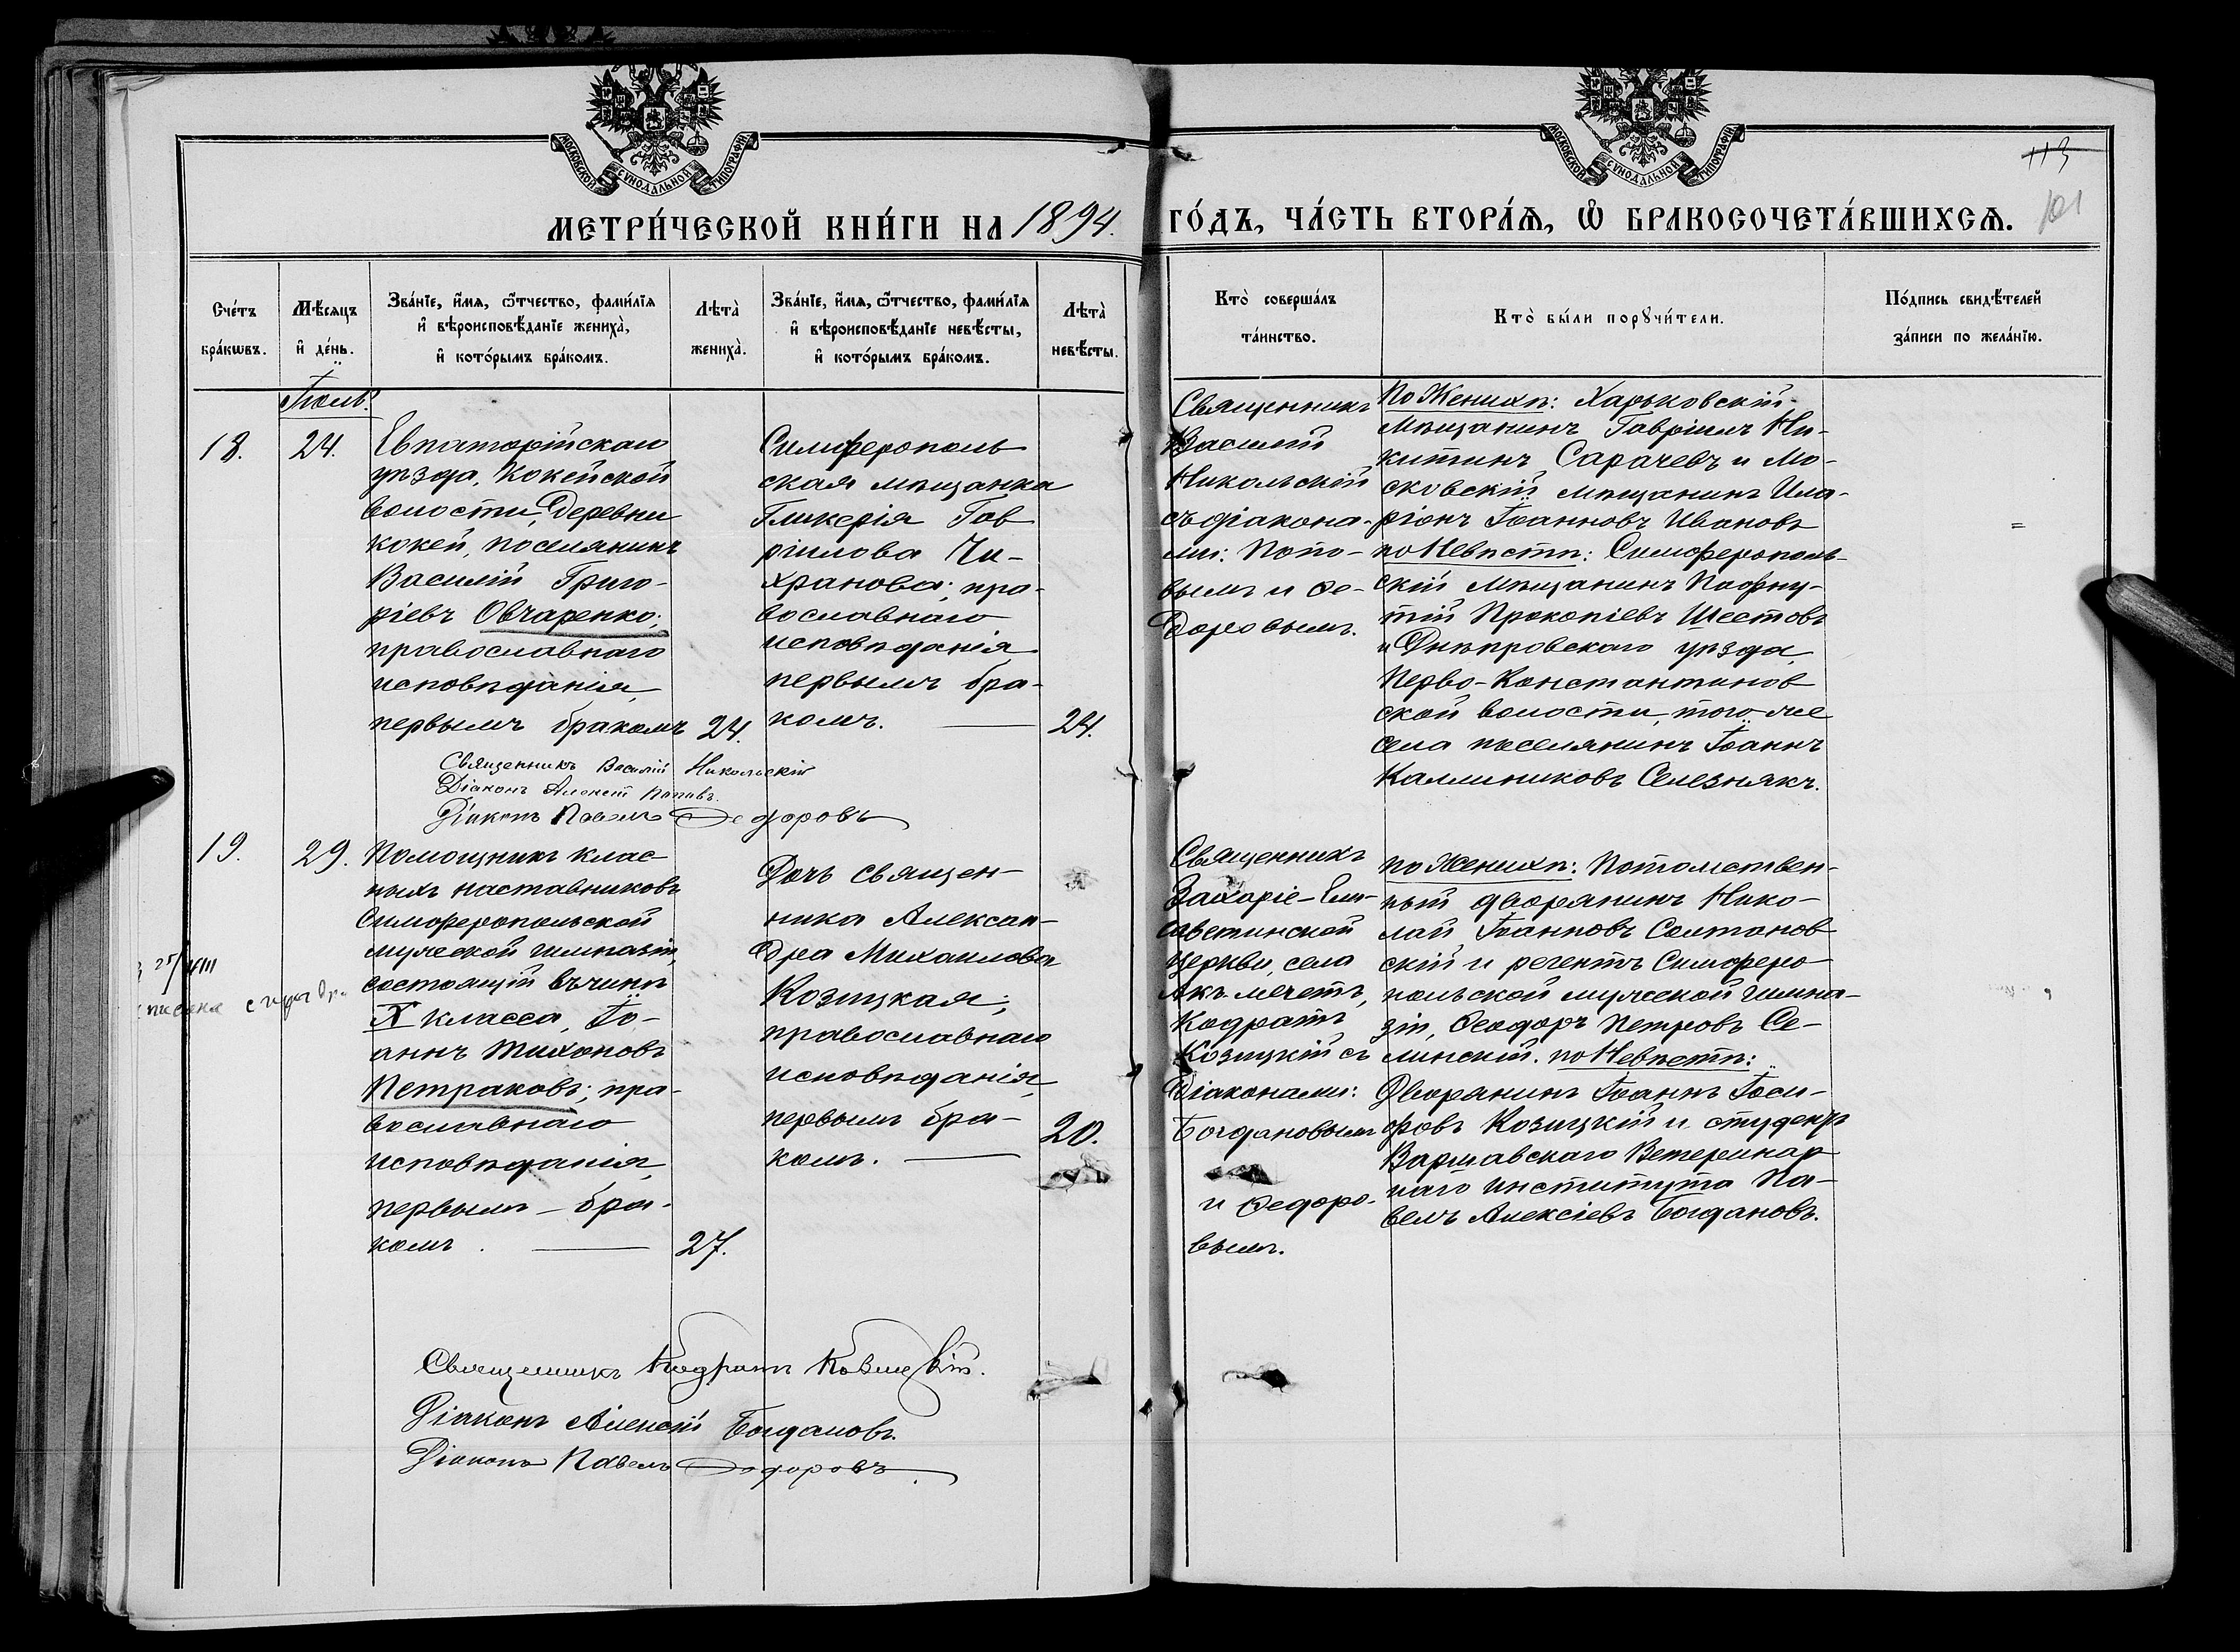 МОСКОВСКОЙ СѴНОДАЛЬНОЙ ТИПОГРАФІИ
МОСКОВСКОЙ СѴНОДАЛЬНОЙ ТИПОГРАФІИ
113
101
МЕТРИ́ЧЕСКОЙ КНИ́ГИ НА 1894. ГО́ДЪ, ЧА́СТЬ ВТОРА́Ѧ, Ѡ҆ БРАКОСОЧЕТА́ВШИХСѦ.
Сче́тъ
бра́кѡвъ.
Мѣ́сяцъ
и҆ де́нь.
Зва́нїе, и҆́мѧ, ѻ҆́тчество, фами́лїѧ
и҆ вѣроисповѣ́данїе жениха̀,
и҆ кото́рымъ бра́комъ.
Лѣта̀
жениха̀.
Зва́нїе, и҆́мѧ, ѻ҆́тчество, фами́лїѧ
и҆ вѣроисповѣ́данїе невѣ́сты,
и҆ кото́рымъ бра́комъ.
Лѣта̀
невѣ́сты.
Кто̀ соверша́лъ
та́инство.
Кто̀ бы́ли порꙋчи́тели.
По́дпись свидѣ́телей
за́писи по жела́нїю.
Іюль.
18.
24.
Евпаторійскаго
уѣзда, Кокейской
волости, деревни
Кокей, поселянинъ
Василій Григо-
ріевъ Овчаренко;
православнаго
исповѣданія,
первымъ бракомъ
24.
Симферополь
ская мѣщанка
Гликерія Гав
ріилова Чи-
хранова; пра-
вославнаго
исповѣданія
первымъ бра-
комъ.
24.
Священникъ
Василій
Никольскій
съ діакона-
ми: Попо-
вымъ и Ѳе-
доровымъ.
По Женихѣ: Харьковскій
мѣщанинъ Гавріилъ Ни-
китинъ Сарачевъ и Мо-
сковскій мѣщанинъ Ила-
ріонъ Іоанновъ Ивановъ
по Невѣстѣ: Симферополь-
скій мѣщанинъ Пафну-
тій Прокопіевъ Шестовъ
и Днѣпровскаго уѣзда,
Перво-Константинов
ской волости, того же
села поселянинъ Іоаннъ
Каллиниковъ Селезнякъ.
Священникъ Василій Никольскій
Діаконъ Алексій Поповъ.
Діаконъ Павелъ Ѳедоровъ
19.
29.
25/VIII
Помощникъ клас
ныхъ наставниковъ
Симферопольской
мужеской гимназіи,
состоящій въ чинѣ
X класса, Іо-
аннъ Тихоновъ
Петраковъ; пра-
вославнаго
исповѣданія,
первымъ бра-
комъ.
27.
Дочь священ-
ника Алексан-
дра Михаилова
Козицкая;
православнаго
исповѣданія,
первымъ бра-
комъ.
20.
Священникъ
Захаріе-Ели-
саветинской
церкви, села
Акъ-мечетъ,
Кодратъ
Козицкій съ
діаконами:
Богдановымъ
и Ѳедоро-
вымъ.
по Женихѣ: Потомствен-
ный дворянинъ Нико-
лай Іоанновъ Солтанов
скій и регентъ Симферо-
польской мужеской гимна-
зіи, Ѳеодоръ Петровъ Се-
линскій. по Невѣстѣ:
Дворянинъ Іоаннъ Іоси-
фовъ Козицкій и студентъ
Варшавскаго Ветеринар
наго института Па-
велъ Алексіевъ Богдановъ.
Священникъ Кодратъ Козицкій.
Діаконъ Алексій Богдановъ.
Діаконъ Павелъ Ѳедоровъ